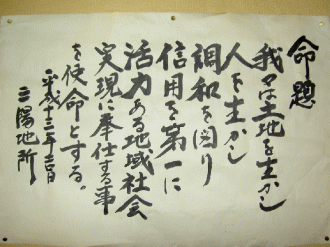 命
我々は土地を生かし
人を生かし
調和を図り
信用を第一に
活力ある地域社会
実現に奉仕する事
を使命とする。
平成十二年吉日
三陽地所